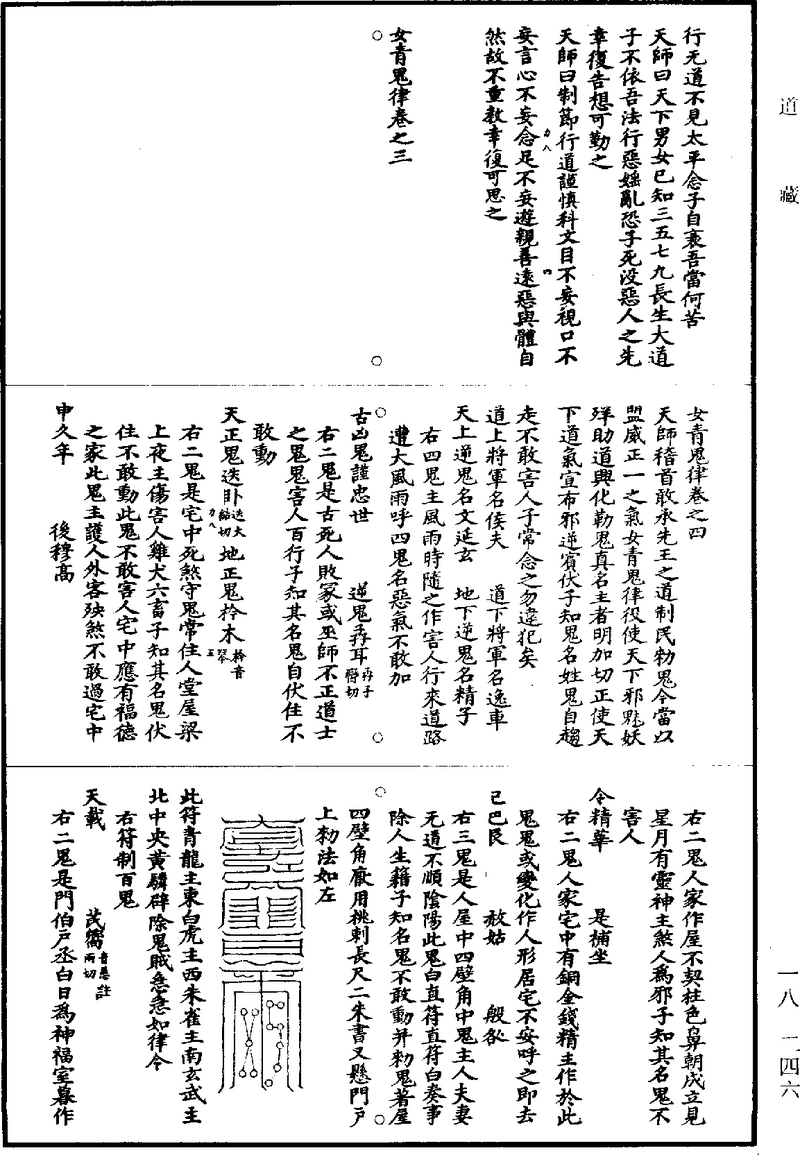 道藏
行无道不見太平念子自衰吾當何苦
天師曰天下男女已知三五七九長生大道
子不依吾法行惡婬亂恐子死没惡人之先
幸復告想可勤之
天師曰制節行道謹慎科文目不妄視口不
妄言心不妄念足不妄遊親善遠惡與體自
然故不重教幸復可思之
女青鬼律卷之三
女青鬼律卷之四
天師稽首敢承先王之道制民勑鬼今當以
盟威正一之氣女青鬼律役使天下邪魅妖
祥助道興化勒鬼真名主者明加切正使天
下道氣宣布邪逆賓伏子知鬼名姓鬼自趨
走不敢害人子常念之勿違犯矣
道上將軍名侯夫 道下將軍名逸車
天上逆鬼名文延玄 地下逆鬼名精子
右四鬼主風雨時隨之作害人行來道路
遭大風雨呼四鬼名惡氣不敢加
古凶鬼謹忠世 逆鬼孨耳
右二鬼是古死人敗冢或巫師不正道士
之鬼鬼害人百行子知其名鬼自伏住不
敢動
天正鬼迭卧迭大結切 地正鬼枔木枔音琴
右二鬼是宅中死煞守鬼常住人堂屋梁
上夜主傷害人雞犬六畜子知其名鬼伏
住不敢動此鬼不敢害人宅中應有福德
之家此鬼主護人外客殃煞不敢過宅中
申久年 後穆高
右二鬼人家作屋不契柱色鼻朝成立見
星月有靈神主煞人爲邪子知其名鬼不
害人
令精華 是捕坐
右二鬼人家宅中有銅金錢精主作於此
鬼鬼或變化作人形居宅不安呼之即去
己巴艮 敖姑
右三鬼是人屋中四壁角中鬼主人夫妻
无道不順陰陽此鬼白直符直符白奏事
除人生籍子知名鬼不敢動并勑鬼著屋
四壁角厭用桃刺長尺二朱書又懸門戶
上勑法如左
此符青龍主東白虎主西朱雀主南玄武主
北中央黄驎辟除鬼賊急急如律令
右符制百鬼
天載
右二鬼是門伯戶丞白日爲神福室暮作
一八 二四六